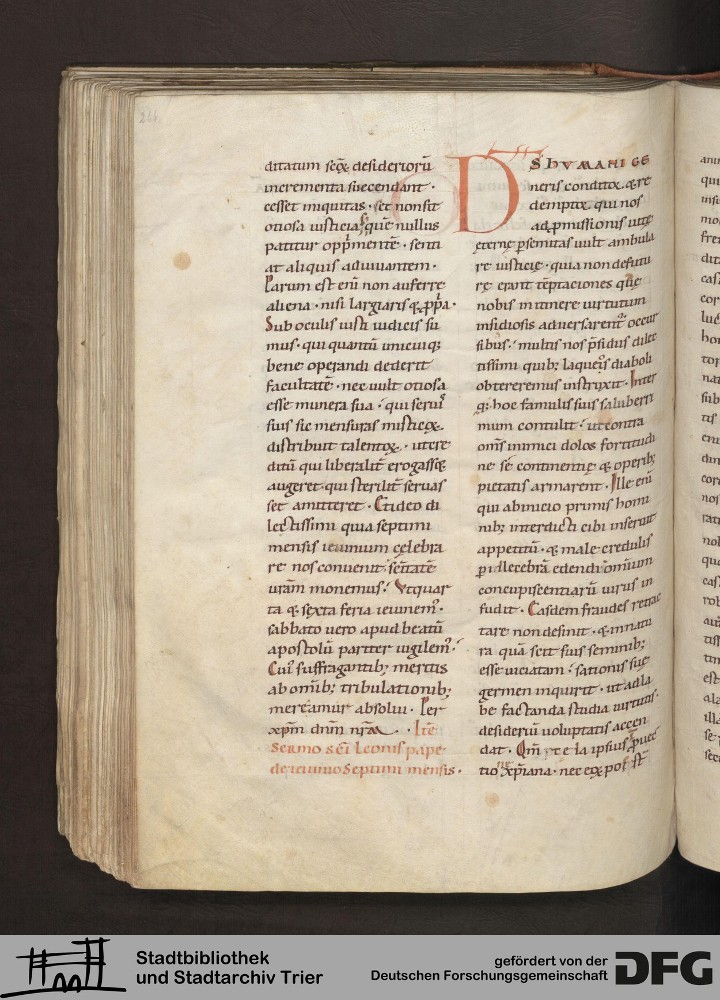 ditatum seq; desideriorū
incrementa succendant ·
cesset iniquitas · set non sit
otiosa iusticia; quē nullus
patitur opp̄mentē · senti
at aliquis adiuuantem ·
Parum est enī non auferre
aliena · nisi largiaris & ꝓpͥa ·
Sub oculis iusti iudicis su
mus · qui quantū unicuiq;
bene operandi dederit
facultatē · nec uult otiosa
esse munera sua · qui seruͥ
suis sic mensuras misticoꝝ
distribuit talentoꝝ · ut cre
ditū qui liberalit̄ erogasset
augeret · qui sterilit̄ seruas
set amitteret · Et ideo di
lectissimi quia septimi
mensis ieiunium celebra
re nos conuenit · sc̄itatē
urām monemus · Vt quar
ta & sexta feria ieiunemꝰ ·
sabbato uero apud beatū
apostolū pariter uigilemꝰ ·
Cuiꝰ suffragantib; meritis
ab omīb; tribulationib;
mereamur absolui · Per
xp̄m dn̄m nr̄m · Itē
Sermo sc̄i Leonis pape
de ieiunio Septimi mensis ·
DS hVMANI GE
neris conditor & re
demptor qui nos
ad ꝓmissionis uitę
ęternę ꝑ semitas uult ambula
re iusticię · quia non defutu
rę erant tēptaciones quę
nobis in itinere uirtutum
insidiosis aduersarent᷑ occur
sibus · multis nos p̄sidiis dilec
tissimi quib; laqueos diaboli
obtereremus instruxit · Inter
q; hoc famulis suis saluberri
mum contulit · ut contra
om̄s inimici dolos fortitudi
ne se continentię & operib;
pietatis armarent · Ille enī
qui ab inicio primis homi
nib; interdicti cibi inseruit
appetitū · & male credulis
ꝑ illecebrā edendi omnium
concupiscentiarū uirus in
fudit · Easdem fraudes retrac
tare non desinit · & in natu
ra quā scit suis seminib;
esse uiciatam · sationis suę
germen inquirit · ut ad la
be factanda studia uirtutis ·
desideriū uoluptatis accen
dat ·
tio xp̄iana · nec eq̄ pot̄ st̄
Stadtbibliothek
und Stadtarchiv Trier
gefördert von der
Deutschen Forschungsgemeinschaft
DFG